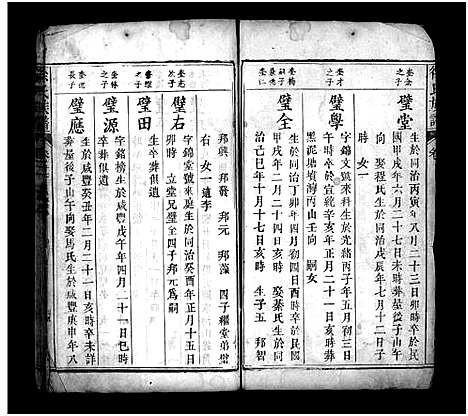 奎金之子
璧堂
生於同治丙寅年八月二十三日卯時卒於民
國甲戌年六月二十七日未時葬屋後子山午
向 娶程氏生於同治戊辰年七月十二日子
時 女一
奎才之子
璧學
字錦文號來科生於光緒丙子年五月初三日
午時卒於宣統辛亥年正月二十一日亥時葬
黑泥塘墳灣丙山壬向 嗣女
璧全
生於同治丁卯年四月初四日酉時卒於民國
甲戌年二月二十四日亥時 娶蓁氏生於同
治己巳年十月十七日亥時 生子五 邦智
邦興 邦發 邦元 邦藻 四子繼堂弟璧
右 女一適李
璧右
字錦堂號來庭生於同治庚午年正月十五日
卯時 立堂兄璧全四子邦元為嗣
璧田
生卒葬俱遺
奎林之子
璧源
字錦榜生於咸豐戊午年四月二十一日亥時
卒葬俱遺
奎德長子
璧應
生於咸豐癸丑年二月二十一日亥時卒未詳
葬屋後子山午向娶馬氏生於咸豐庚申年八